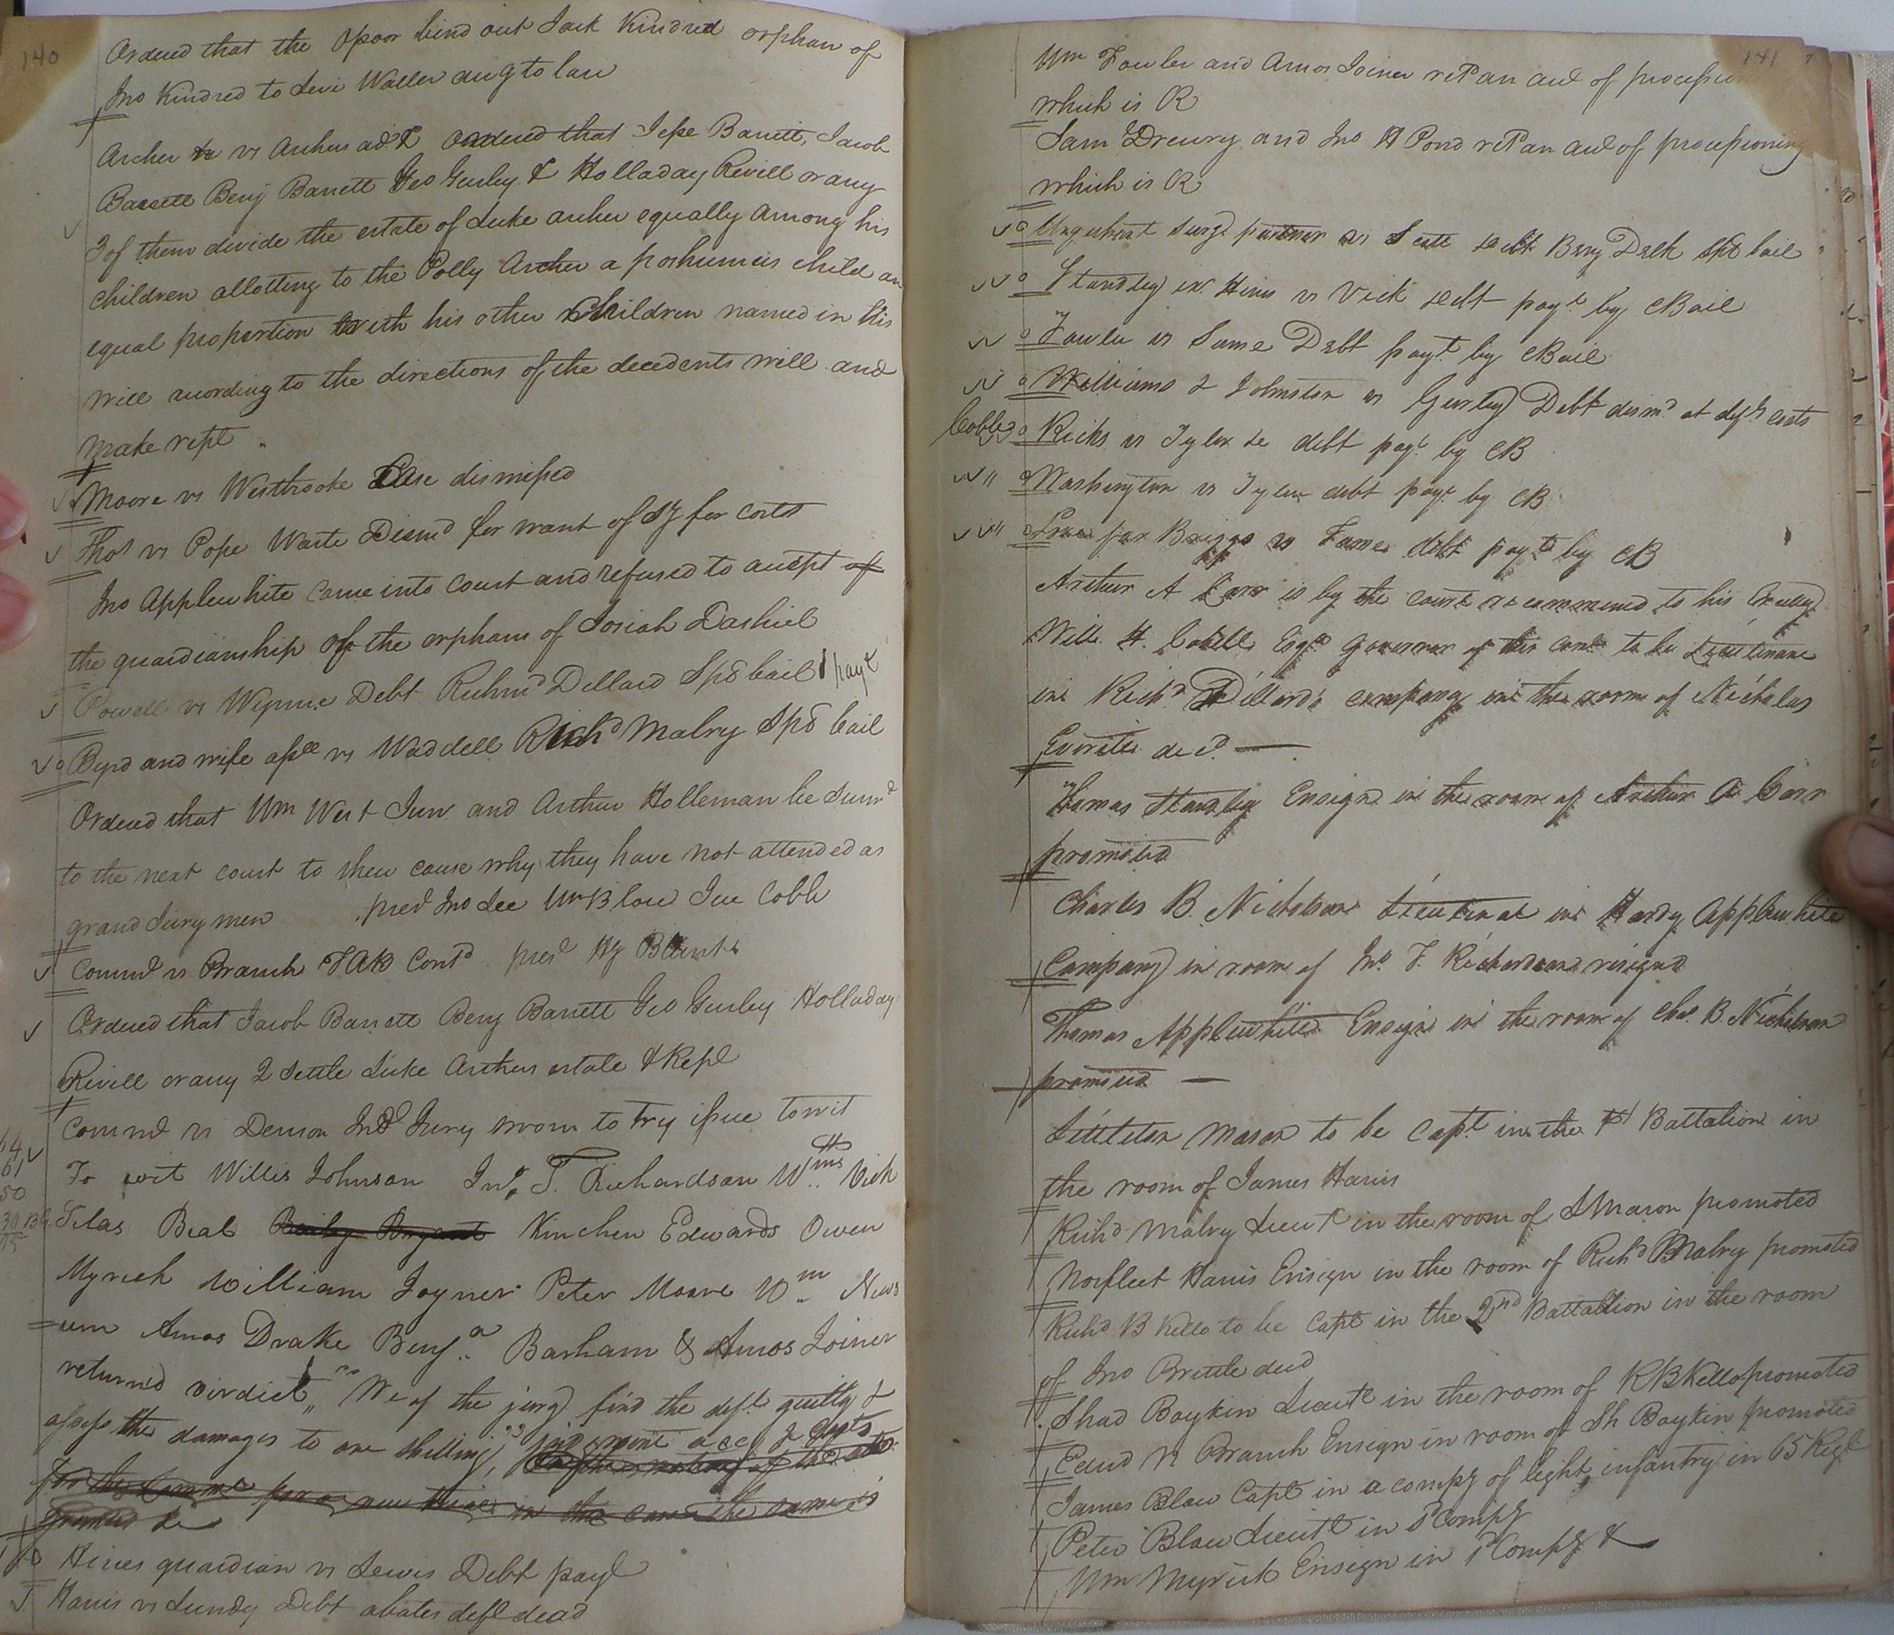 140
Ordered that the Opoor bind out Jack Kindred orphan of
Jno Kindred to Levi Waller aug to law
Archer &c vs Archers adx ordered that Jesse Barrett, Jacob
Barrett Benj Barrett Geo Gurley & Holladay Revill or any
3 of them divide the estate of Luke archer equally among his
children allotting to the Polly Archer a poshumus child an
equal proportion with his other children named in his
will acording to the directions of the decedents will and
make rept
Moore vs Westbrooke Case dismissed
Thos vs Pope Waste Dismd for want of sy for costs
Jno Applewhite came into court and refused to accept of
the guardianship of the orphans of Josiah Dashiel
Powell vs Wynne Debt Richmd Dillard Spd bail payt
Byrd and wife apll vs Waddell Richd Malry Spd bail
Ordered that Wm West Junr and Arthur Holleman be Sumd
to the next court to shew cause why they have not attended as
grand Jury men presd Jno Lee Wm Blow Jere Cobb
Commd vs Branch TAB Contd presd Hy Blunt
Ordered that Jacob Barrett Benj Barrett Geo Gurley Holladay
Revill or any 2 settle Luke Archers estate & Rept
Commd vs Denson Ind Jury sworn to try issue towit
To wit Willis Johnson Jno T. Richardson Wms Vick
Silas Beal Baily Bryant Kinchen Edwards Owen
Myrick William Joyner Peter Moore Wm News
um Amos Drake Benja Barham & Amos Joiner
returnd virdict "We of the jury find the deft guilty &
assess the damages to one shilling," judgment acc & costs
for the Commd for a new trial in this case the same is
granted &c
Hines guardian vs Lewis Debt payt
Harris vs Lundy Debt abates deft dead
141
Wm Fowler and Amos Joiner retd an acct of processio
which is R
Sam Drewry and Jno H Pond retd an acct of processioning
which is R
Urquhart surg partner vs Scott debt Benj Delk Spd bail
Standley exr Hines vs Vick debt payt by CBail
Fowler vs Same Debt payt by CBail
Williams & Johnston vs Gurley Debt dismd at defts costs
Cobbs
Ricks vs Tyler &c debt payt by CB
Washington vs Tyler debt payt by CB
for Briggs vs James debt payt by CB
Arthur A Carr is by the court recommend to his Excelly
Will. H. Cabell Esqr Governor of this comlt to be Lieutenant
in Richd Dillard's company in the room of Nicholas
Everitt decd.
Thomas Standley Ensign in the room of Arthur A Carr
promoted
Charles B. Nicholson Lieutenat in Hardy Applewhite
Company in room of Jno. T. Richardson resignd
Thomas Applewhite Ensign in the room of Chas. B. Nicholson
promoted
Littleton Mason to be Capt in the 1st Battalion in
the room of James Harris
Richd Malry Lieut in the room of L Mason promoted
Norfleet Harris Ensign in the room of Richd Malry promoted
Richd B Kello to be Capt in the 2nd Battallion in the room
of Jno Brittle decd
Shad Boykin Lieut in the room of R B Kello promoted
Edwd N Branch Ensign in room of Sh Boykin promoted
James Blow Capt in a compy of light infantry in 65 Regt
Peter Blow Lieut in sd Compy
Wm Myrick Ensign in sd Compy &